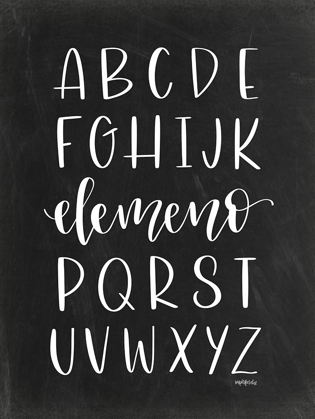 A B C D E
F G H I J K
elemeno
P Q R S T
U V W X Y Z